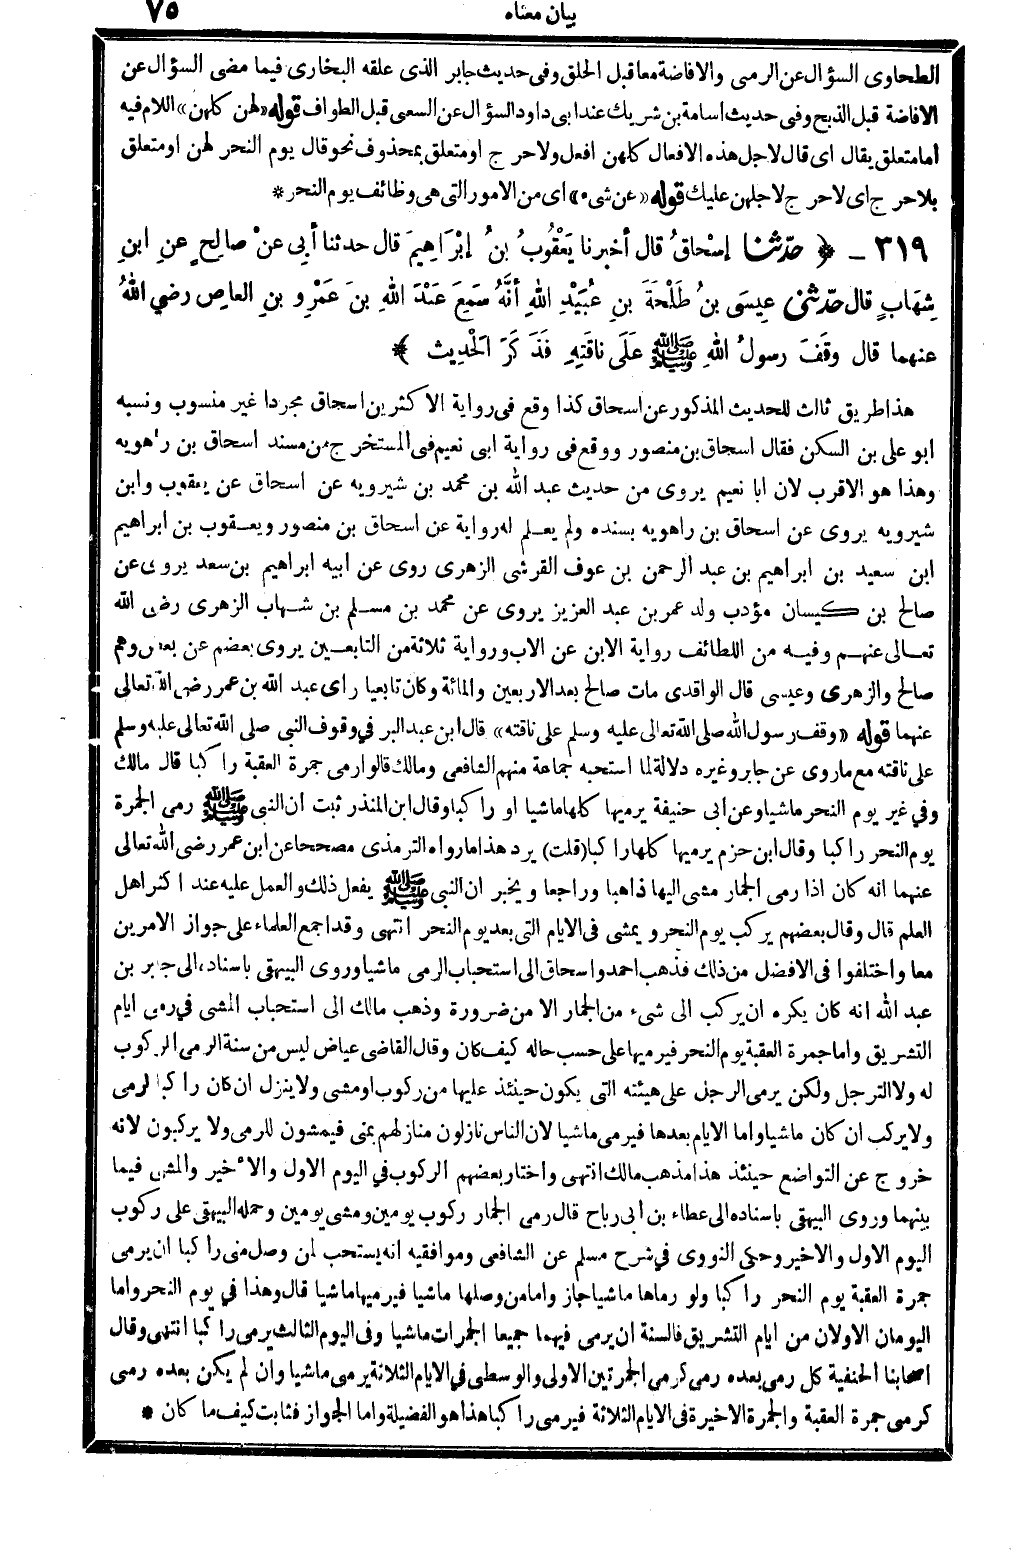 بيان معناه ٧٥
الطحاوى السؤال عن الرمى والافاضة معا قبل الحلق وفى حديث جابر الذى علقه البخارى فيما مضى السؤال عن
الافاضة قبل الذبح وفى حديث اسامة بن شريك عند ابى داود السؤال عن السعى قبل الطواف قوله «لهن كلهن» اللام فيه
اما متعلق بقال اى قال لاجل هذه الافعال كلهن افعل ولا حرج او متعلق بمحذوف نحو قال يوم النحر لهن او متعلق
بلا حرج اى لا حرج لاجلهن عليك قوله «عن شىء» اى من الامور التى هى وظائف يوم النحر *
٣١٩ - ﴿ حدّثنا إسْحاقُ قال أخبرنا يَعْقُوبُ بنُ إبْرَاهِيمَ قال حدثنا أبِى عنْ صالِحٍ عنِ ابنِ
شِهَابٍ قال حدّثنى عِيسَى بنُ طَلْحَةَ بنِ عُبَيْدِ اللهِ أنَّهُ سَمِعَ عَبْدَ اللهِ بنَ عَمْرِو بنِ العاصِ رضي اللهُ
عنهما قال وقَفَ رسولُ اللهِ ﷺ عَلَى ناقَتِهِ فذَكَرَ الحْدِيث ﴾
هذا طريق ثالث للحديث المذكور عن اسحاق كذا وقع فى رواية الاكثرين اسحاق مجردا غير منسوب ونسبه
ابو على بن السكن فقال اسحاق بن منصور ووقع فى رواية ابى نعيم فى المستخرج من مسند اسحاق بن راهويه
وهذا هو الاقرب لان ابا نعيم يروى من حديث عبد الله بن محمد بن شيرويه عن اسحاق عن يعقوب وابن
شيرويه يروى عن اسحاق بن راهويه بسنده ولم يعلم له رواية عن اسحاق بن منصور ويعقوب بن ابراهيم
ابن سعيد بن ابراهيم بن عبد الرحمن بن عوف القرشى الزهرى روى عن ابيه ابراهيم بن سعد يروى عن
صالح بن كيسان مؤدب ولد عمر بن عبد العزيز يروى عن محمد بن مسلم بن شهاب الزهرى رضى الله
تعالى عنهم وفيه من اللطائف رواية الابن عن الاب ورواية ثلاثة من التابعين يروى بعضم عن بعض وهم
صالح والزهرى وعيسى قال الواقدى مات صالح بعد الاربعين والمائة وكان تابعيا راى عبد الله بن عمر رضى الله تعالى
عنهما قوله «وقف رسول الله صلى الله تعالى عليه وسلم على ناقته» قال ابن عبد البر في وقوف النبى صلى الله تعالى عليه وسلم
على ناقته مع ما روى عن جابر وغيره دلالة لما استحبه جماعة منهم الشافعى ومالك قالوا رمى جمرة العقبة راكبا قال مالك
وفي غير يوم النحر ماشيا وعن ابى حنيفة يرميها كلها ماشيا او راكبا وقال ابن المنذر ثبت ان النبى ﷺ رمى الجمرة
يوم النحر راكبا وقال ابن حزم يرميها كلها راكبا (قلت) يرد هذا ما رواه الترمذى مصححا عن ابن عمر رضى الله تعالى
عنهما انه كان اذا رمى الجمار مشى اليها ذاهبا وراجعا ويخبر ان النبى ﷺ يفعل ذلك والعمل عليه عند اكثر اهل
العلم قال وقال بعضهم يركب يوم النحر ويمشى فى الايام التى بعد يوم النحر انتهى وقد اجمع العلماء على جواز الامرين
معا واختلفوا فى الافضل من ذلك فذهب احمد واسحاق الى استحباب الرمى ماشيا وروى البيهقى باسناده الى جابر بن
عبد الله انه كان يكره ان يركب الى شىء من الجمار الا من ضرورة وذهب مالك الى استحباب المشى في رمى ايام
التشريق واما جمرة العقبة يوم النحر فيرميها على حسب حاله كيف كان وقال القاضى عياض ليس من سنة الرمى الركوب
له ولا الترجل ولكن يرمى الرجل على هيئته التى يكون حينئذ عليها من ركوب او مشى ولا ينزل ان كان راكبا لرمى
ولا يركب ان كان ماشيا واما الايام بعدها فيرمى ماشيا لان الناس نازلون منازلهم بمنى فيمشون للرمى ولا يركبون لانه
خروج عن التواضع حينئذ هذا مذهب مالك انتهى واختار بعضهم الركوب في اليوم الاول والاخير والمشى فيما
بينهما وروى البيهقى باسناده الى عطاء بن أبى رباح قال رمى الجمار ركوب يومين ومشى يومين وحمله البيهقى على ركوب
اليوم الاول والاخير وحكى النووى في شرح مسلم عن الشافعى وموافقيه انه يستحب لمن وصل منى راكبا ان يرمى
جمرة العقبة يوم النحر راكبا ولو رماها ماشيا جاز واما من وصلها ماشيا فيرميها ماشيا قال وهذا في يوم النحر واما
اليومان الاولان من ايام التشريق فالسنة ان يرمى فيهما جميعا الجمرات ماشيا وفى اليوم الثالث يرمى راكبا انتهى وقال
اصحابنا الحنفية كل رمى بعده رمى كرمى الجمرتين الاولى والوسطى في الايام الثلاثة يرمى ماشيا وان لم يكن بعده رمى
كرمى جمرة العقبة والجمرة الاخيرة فى الايام الثلاثة فيرمى راكبا هذا هو الفضيلة واما الجواز فثابت كيف ما كان *